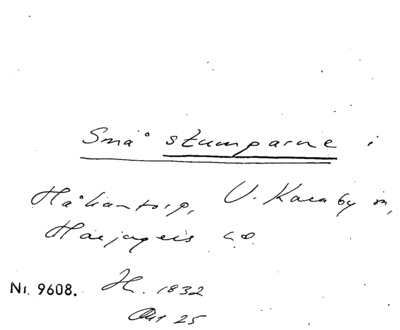 Små stumparne i
Håkantorp, V. Karaby sn,
Harjagers hd.
Nr. 9608. H. 1832
Okt 25